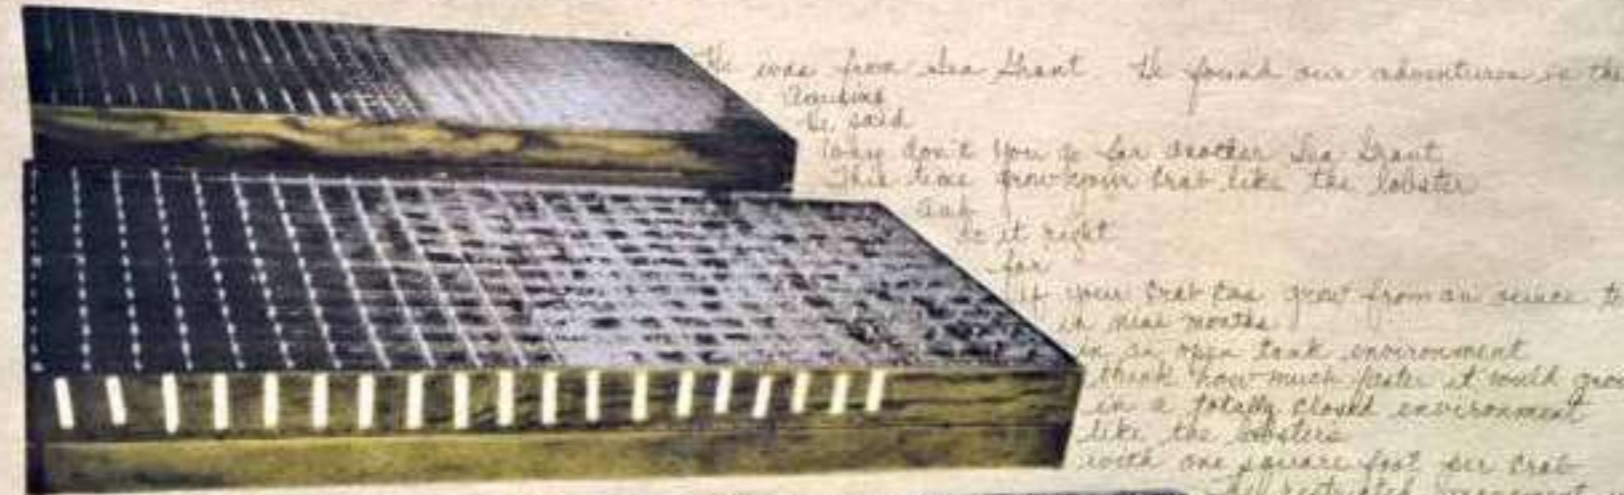 He was from Sea Grant He found our adventures in the
he said
Why don't you go for another Sea Grant
This time grow your crab like the lobster
and
do it right
for
if your crab can grow from an ounce to
in nine months
in an open tank environment
think how much faster it would grow
in a totally closed environment
like the lobsters
with one square foot per crab
restricted movement